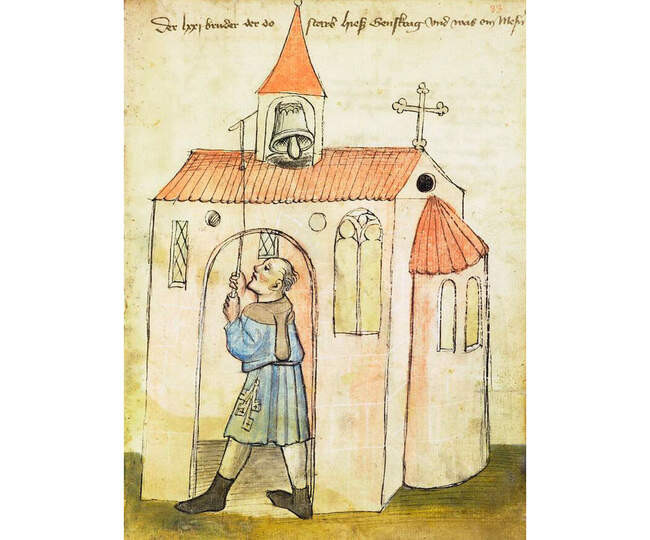 Der lxxi bruder der do starb hieß Genskrag vnd was ein Mesn